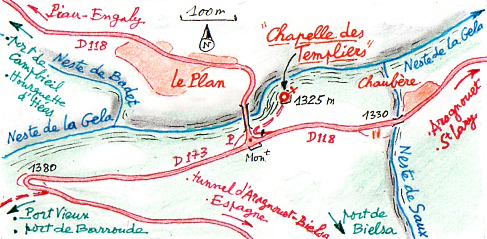 Piau-Engaly
D118
100m
N
"Chapelle des
Templiers"
Neste de la Gela
Port de
Campbieil
Hourquette
d'Héas
Neste de Badet
Le Plan
1325 m
Chaubère
1330
Aragnouet
St Lary
Neste de la Gela
P
Mont
D118
D173
1380
Tunnel d'Aragnouet-Bielsa
Espagne
Port Vieux
port de Barroude
port de
Bielsa
Neste de Saux